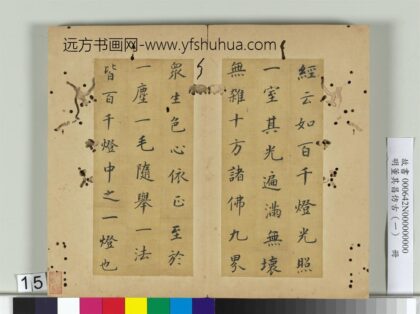 远方书画网-www.yfshuhua.com
經云如百千燈光照
一室其光遍滿無壞
無雜十方諸佛九界
眾生色心依正至於
一塵一毛隨舉一法
皆百千燈中之一燈也
故書000642N000000000
明董其昌仿古(一) 冊
15